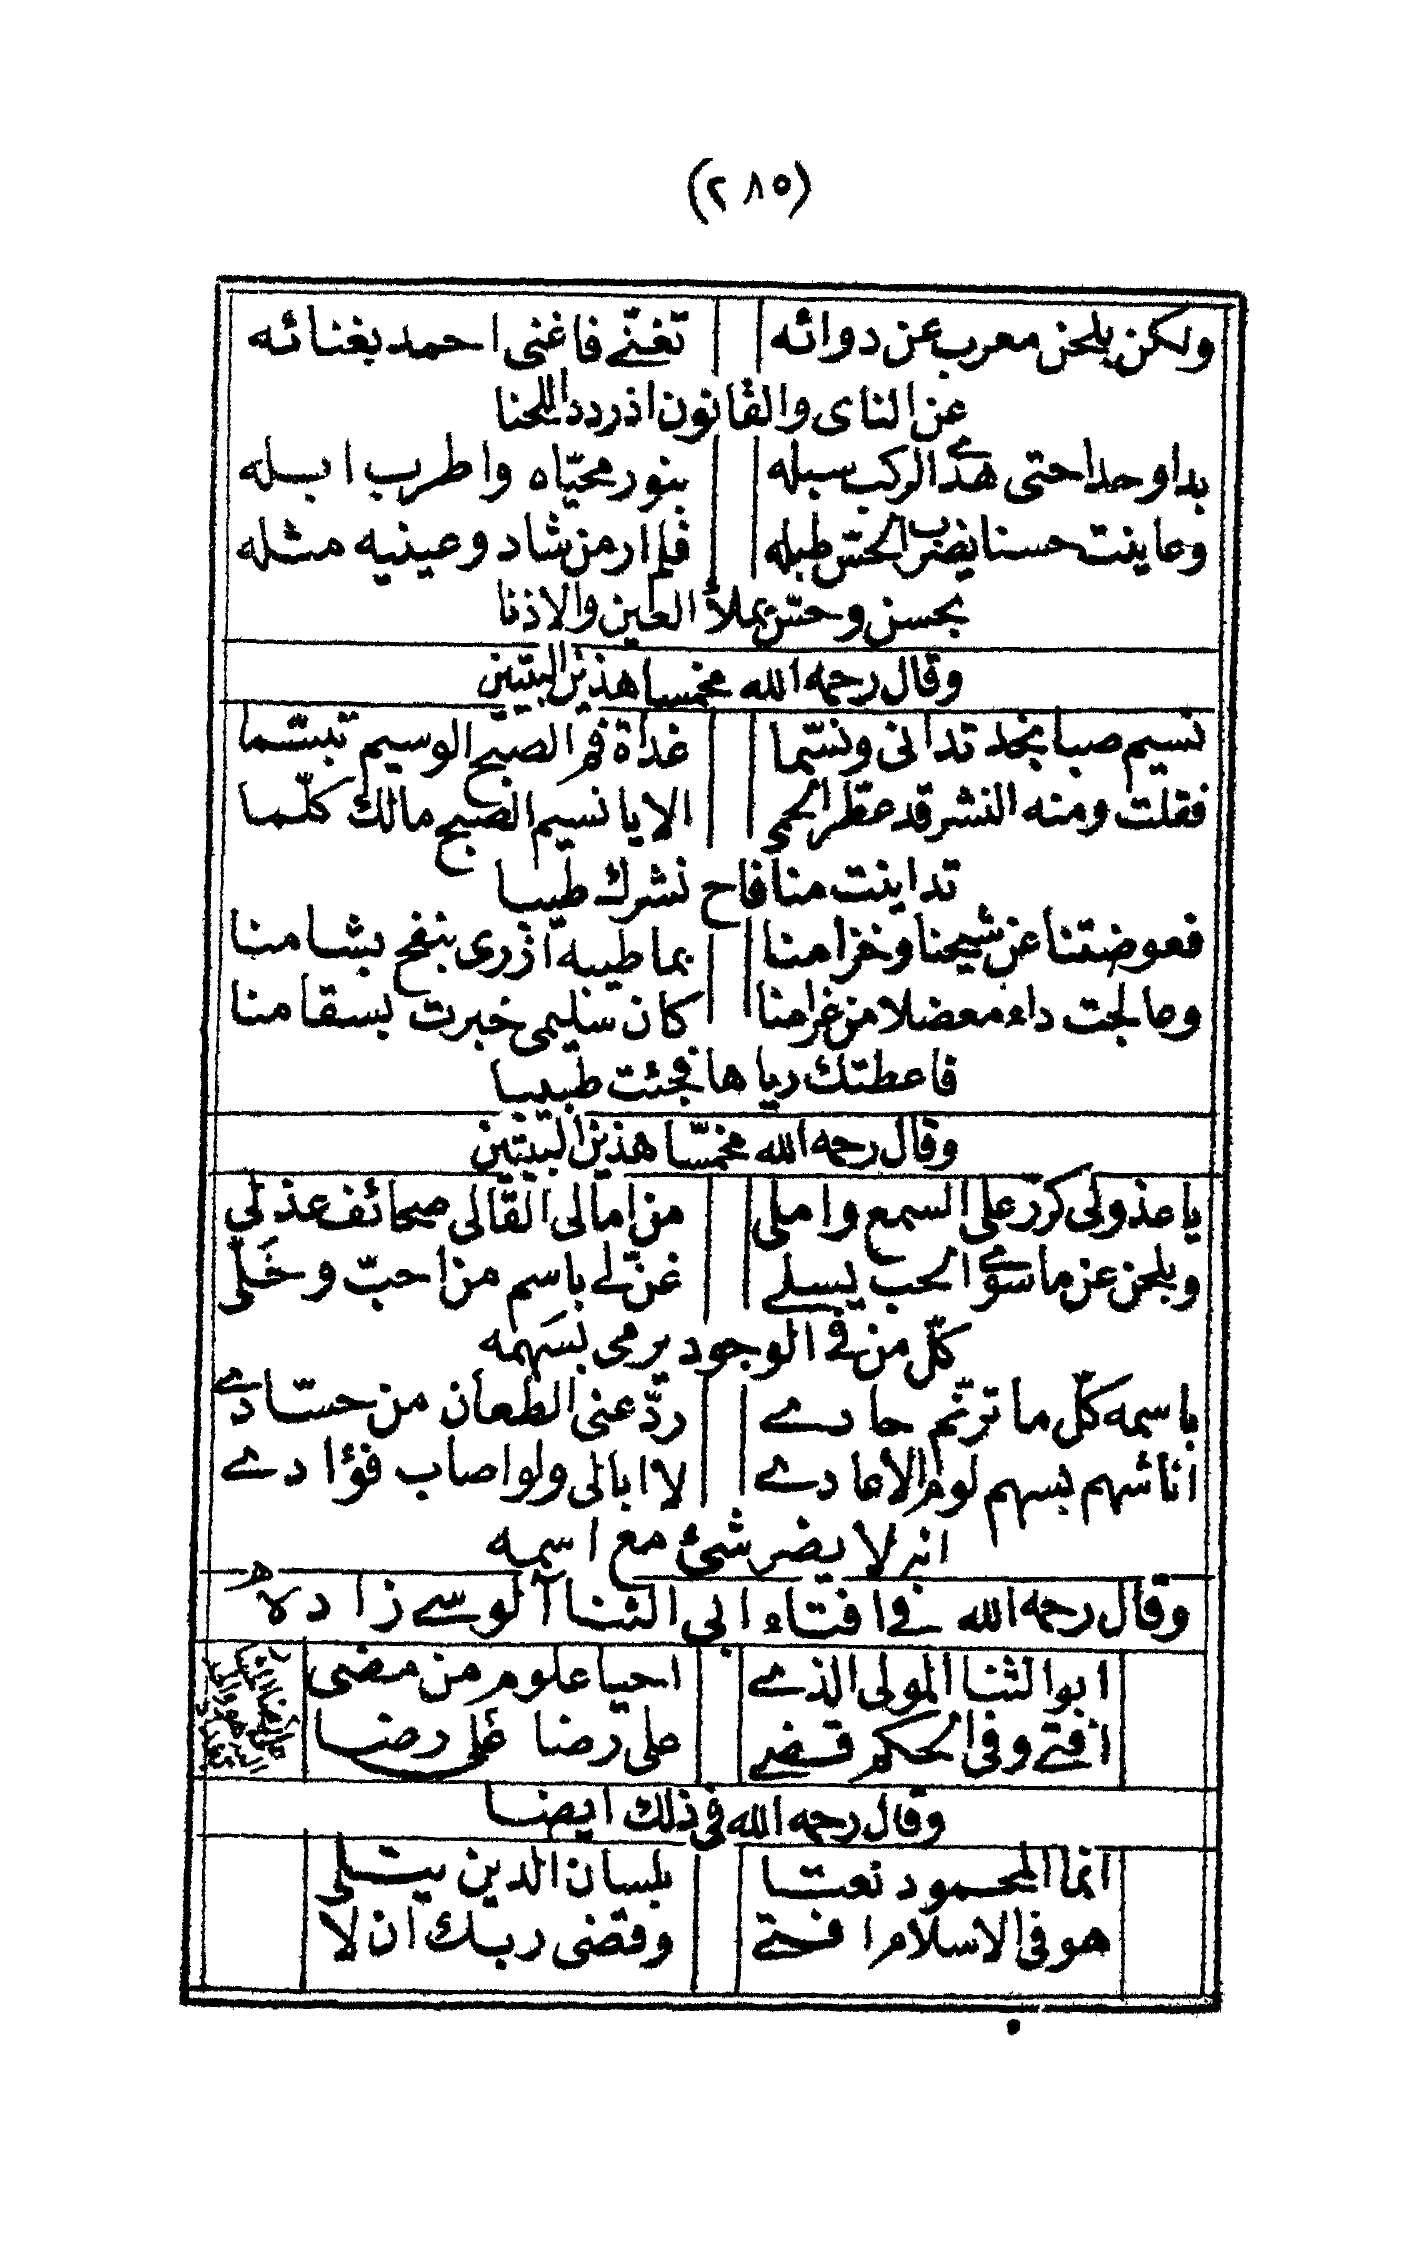 (٢٨٥)
ولكن بلحن معرب عن دوائه تغنّے فاغنى احمد بغنائه
عن الناى والقانون اذ ردد اللحنا
بدا وحدا حتى هدے الركب سبله بنور محيّاه واطرب ابله
وعاينت حسنا يضرب الحسّ طبله فلم ار من شاد وعينيه مثله
بحسن وحسّ يملأ العين والاذنا
وقال رحمه الله مخمسا هذين البيتين
نسيم صبا نجد تدانى ونسّما غداة فم الصبح الوسيم تبسّما
فقلت ومنه النشر قد عطّر الحمى الا يا نسيم الصبح مالك كلّما
تداينت منا فاح نشرك طيبا
فعوضتنا عن شيحنا وخزامنا بما طيبه اذرى بنفح بشامنا
وعالجت داء معضلا من غرامنا كان سليمى خبرت بسقامنا
فاعطتك رياها فجئت طبيبا
وقال رحمه الله مخمسّا هذين البيتين
يا عذولى كرّر على السمع واملى من امالى القالى صحائف عذلى
وبلحن عن ما سوے الحب يسلے غنّ لے باسم من احبّ وخَلّى
كلّ من فى الوجود يرمى بسَهمه
باسمه كلّ ما ترنّم حادے ردّ عنى الطعان من حسّادے
انا شهم بسهم لوم الاعادے لا ابالى ولو اصاب فؤادے
انه لا يضر شئ مع اسمه
وقال رحمه الله فے افتاء ابى الثنا آلوسے زاده
ابو الثنا المولى الذے احيا علوم من مضى
أفتے وفى الحكم قضے على رضا على رضا
وقال رحمه الله فى ذلك ايضا
انما المحمود نعتا بلسان الدين يتلى
هو فى الاسلام افتے وقضى ربك ان لا